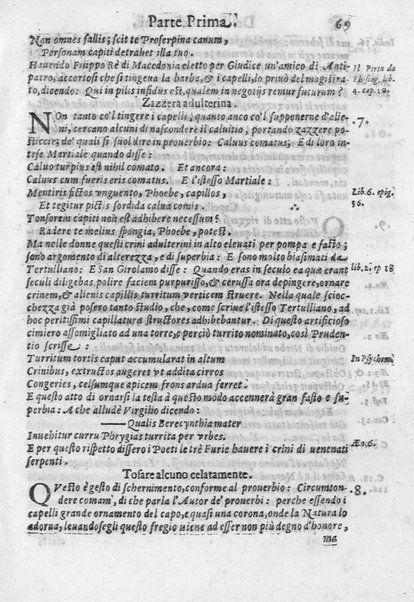 Parte Prima. 69
Non omnes fallis; scit te Proserpina canum,
Personam capiti detrahet illa tuo.
Hauendo Filippo Rè di Macedonia eletto per Giudice un'amico di Anti-
patro, accortosi che si tingena la barba, & i capelli, lo priuò del magistra
to, dicendo: Qui in pilis infidus est, qualem in negotijs remur futurum?
lib.
4. cap. 10.
Zazzera adulterina.
NOn tanto co'l tingere i capelli, quanto anco co'l supponerne d'alie-
ni, cercano alcuni di nascondere il caluitio, portando zazzere po-
sticcie; de' quali si suol dire in prouerbio: Caluus comatus; E di loro in-
tese Martiale quando disse:
.7.
Caluo turpius est nihil comato. Et ancora:
Caluus cum fueris eris comatus. E l'istesso Martiale:
Mentiris fictos vnguento, Phoebe, capillos,
Et tegitur pictis sordida calua comis.
Lib. 6. epig.
56.
Tonsorem capiti non est adhibere necessum:
Radere te melius spongia, Phoebe, potest.
Ma nelle donne questi crini adulterini in alto eleuati per pompa e fasto;
sono argomento di alterezza, e di superbia: E sono molto biasimati da
Tertulliano: E San Girolamo disse: Quando eras in seculo ea quæ erant
lib. 2. ep 18
seculi diligebas polire faciem purpurisso, & cerussa ora depingere, ornare
crinem, & alienis capillis turritum verticem struere. Nella quale scioc-
chezza già posero tanto studio, che, come scriue l'istesso Tertulliano, ad
hoc peritissimi capillaturæ structores adhibebantur. Di questo artificioso
cimiero assomigliato ad una torre, e perciò turrito nominato, così Pruden-
tio scrisse:
Turritum tortis caput accumularat in altum
In Psychom.
Crinibus, extructos augeret vt addita cirros
Congeries, celsumque apicem frons ardua ferret.
E questo atto di ornarsi la testa à questo modo accennerà gran fasto e su-
perbia: A che allude Virgilio dicendo:
Qualis Berecynthia mater
Inuehitur curru Phrygias turrita per vrbes.
Æn. 6.
E per questo rispetto dissero i Poeti le tre Furie hauere i crini di uenenati
serpenti.
Tosare alcuno celatamente.
QVesto è gesto di schernimento, conforme al prouerbio: Circumton-
dere comam, di che parla l'Autor de' prouerbi: perche essendo i
.8.
capelli grande ornamento del capo, e quasi una corona, onde la Natura lo
adorna, leuandosegli questo fregio uiene ad esser non più degno d'honore,
ma